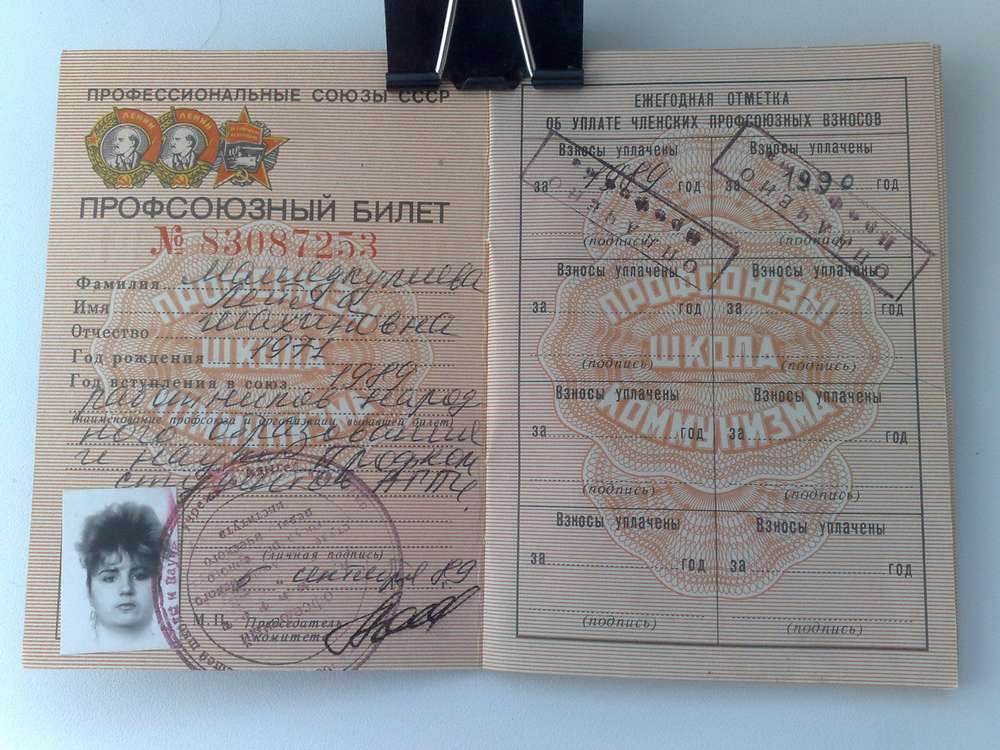 ПРОФЕССИОНАЛЬНЫЕ СОЮЗЫ СССР
ЛЕНИН ЛЕНИН
ПРОФСОЮЗНЫЙ БИЛЕТ
№ 83087253
Фамилия
Имя
Отчество
Год рождения 1971
Год вступления в союз 1989
работников народ
наименование профсоюза и организации, выдавшей билет
ного образования
и науки Профком
студентов АГПИ
(личная подпись)
5 сентября 89
М.П. Председатель
Профсоюзы
ШКОЛА
КОММУНИЗМА
ЕЖЕГОДНАЯ ОТМЕТКА
ОБ УПЛАТЕ ЧЛЕНСКИХ ПРОФСОЮЗНЫХ ВЗНОСОВ
Взносы уплачены Взносы уплачены
за 1989 год за 1990 год
ОПЛАЧЕНО ОПЛАЧЕНО
Профком Профком
(подпись) (подпись)
Взносы уплачены Взносы уплачены
за год за год
(подпись) (подпись)
Взносы уплачены Взносы уплачены
за год за год
(подпись) (подпись)
Взносы уплачены Взносы уплачены
за год за год
(подпись) (подпись)
ПРОФСОЮЗЫ
ШКОЛА
КОММУНИЗМА